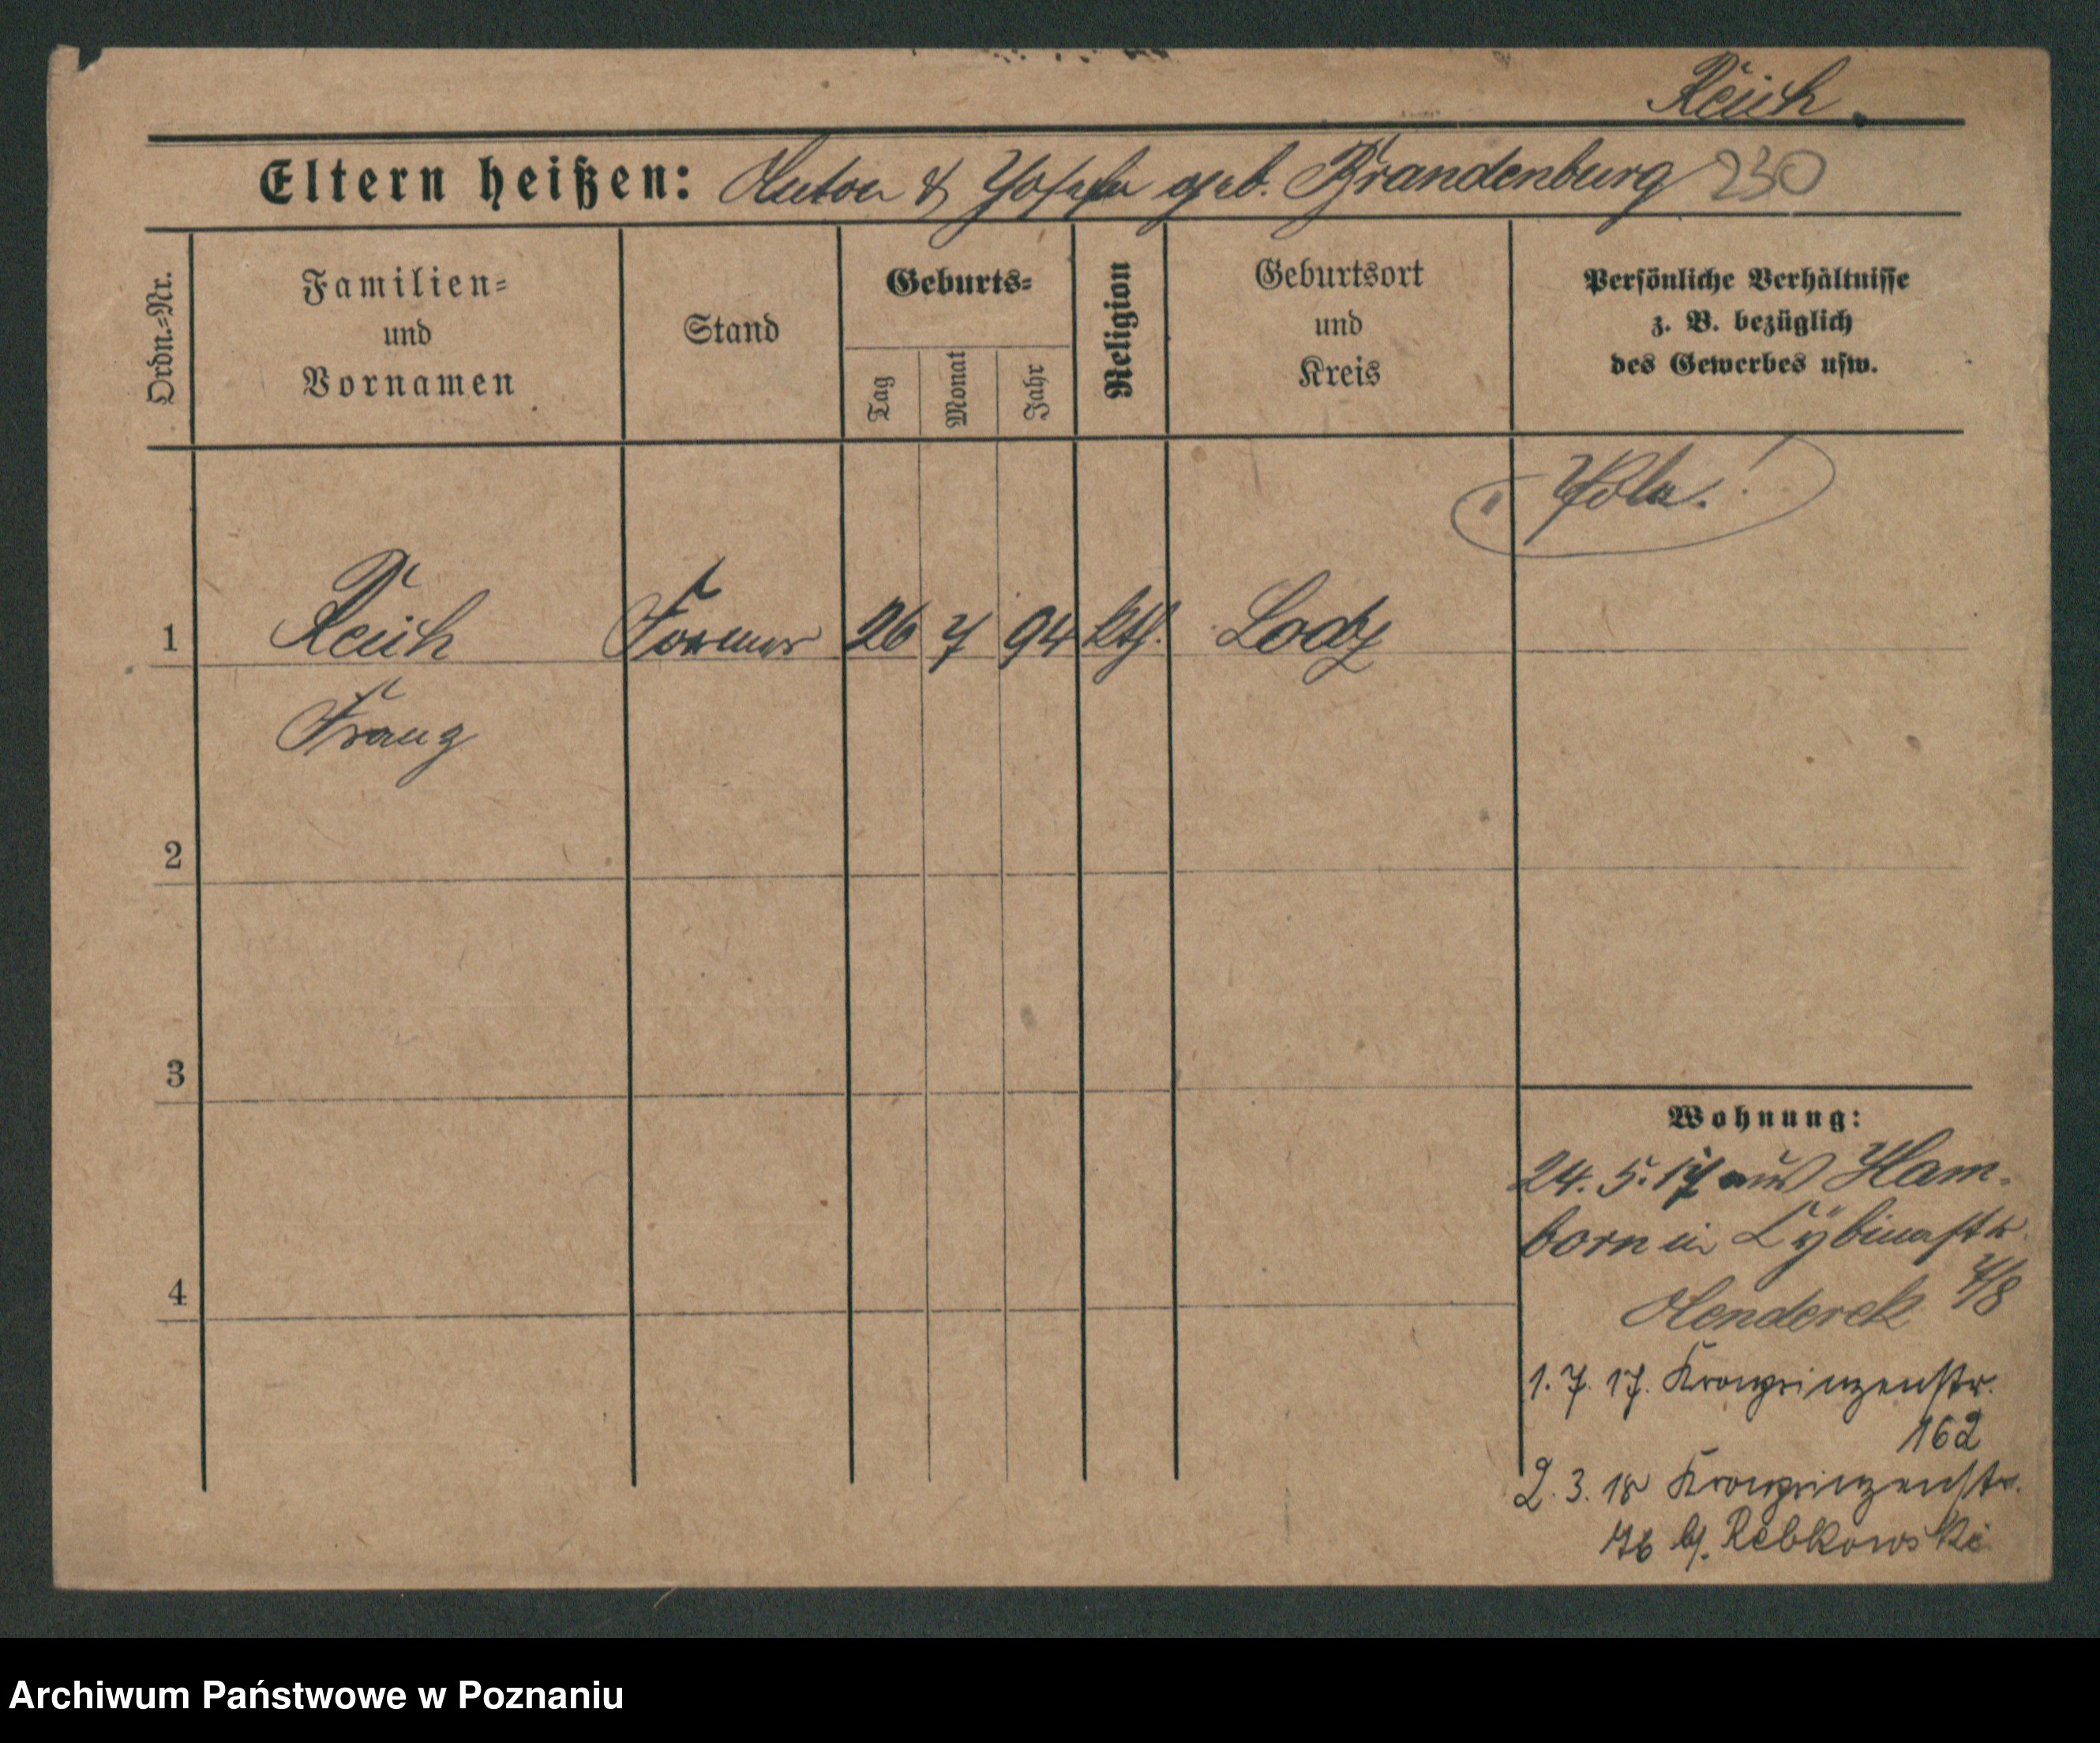 Reich.
Eltern heißen: Anton & Josefa geb. Brandenburg 230
Ordn.=Nr.
Familien=
und
Vornamen
Stand
Geburts=
Tag
Monat
Jahr
Religion
Geburtsort
und
Kreis
Persönliche Verhältnisse
z. B. bezüglich
des Gewerbes usw.
" Pole. !
1 Reich Former 26 7 94 kth. Lodz
Franz
2
3
4
Wohnung:
24. 5. 17 aus Ham-
born in Cybinastr.
7/8
Henderek
1. 7. 17. Kronprinzenstr.
162
2. 3. 18 Kronprinzenstr.
76 b/. Rebkowski
Archiwum Państwowe w Poznaniu